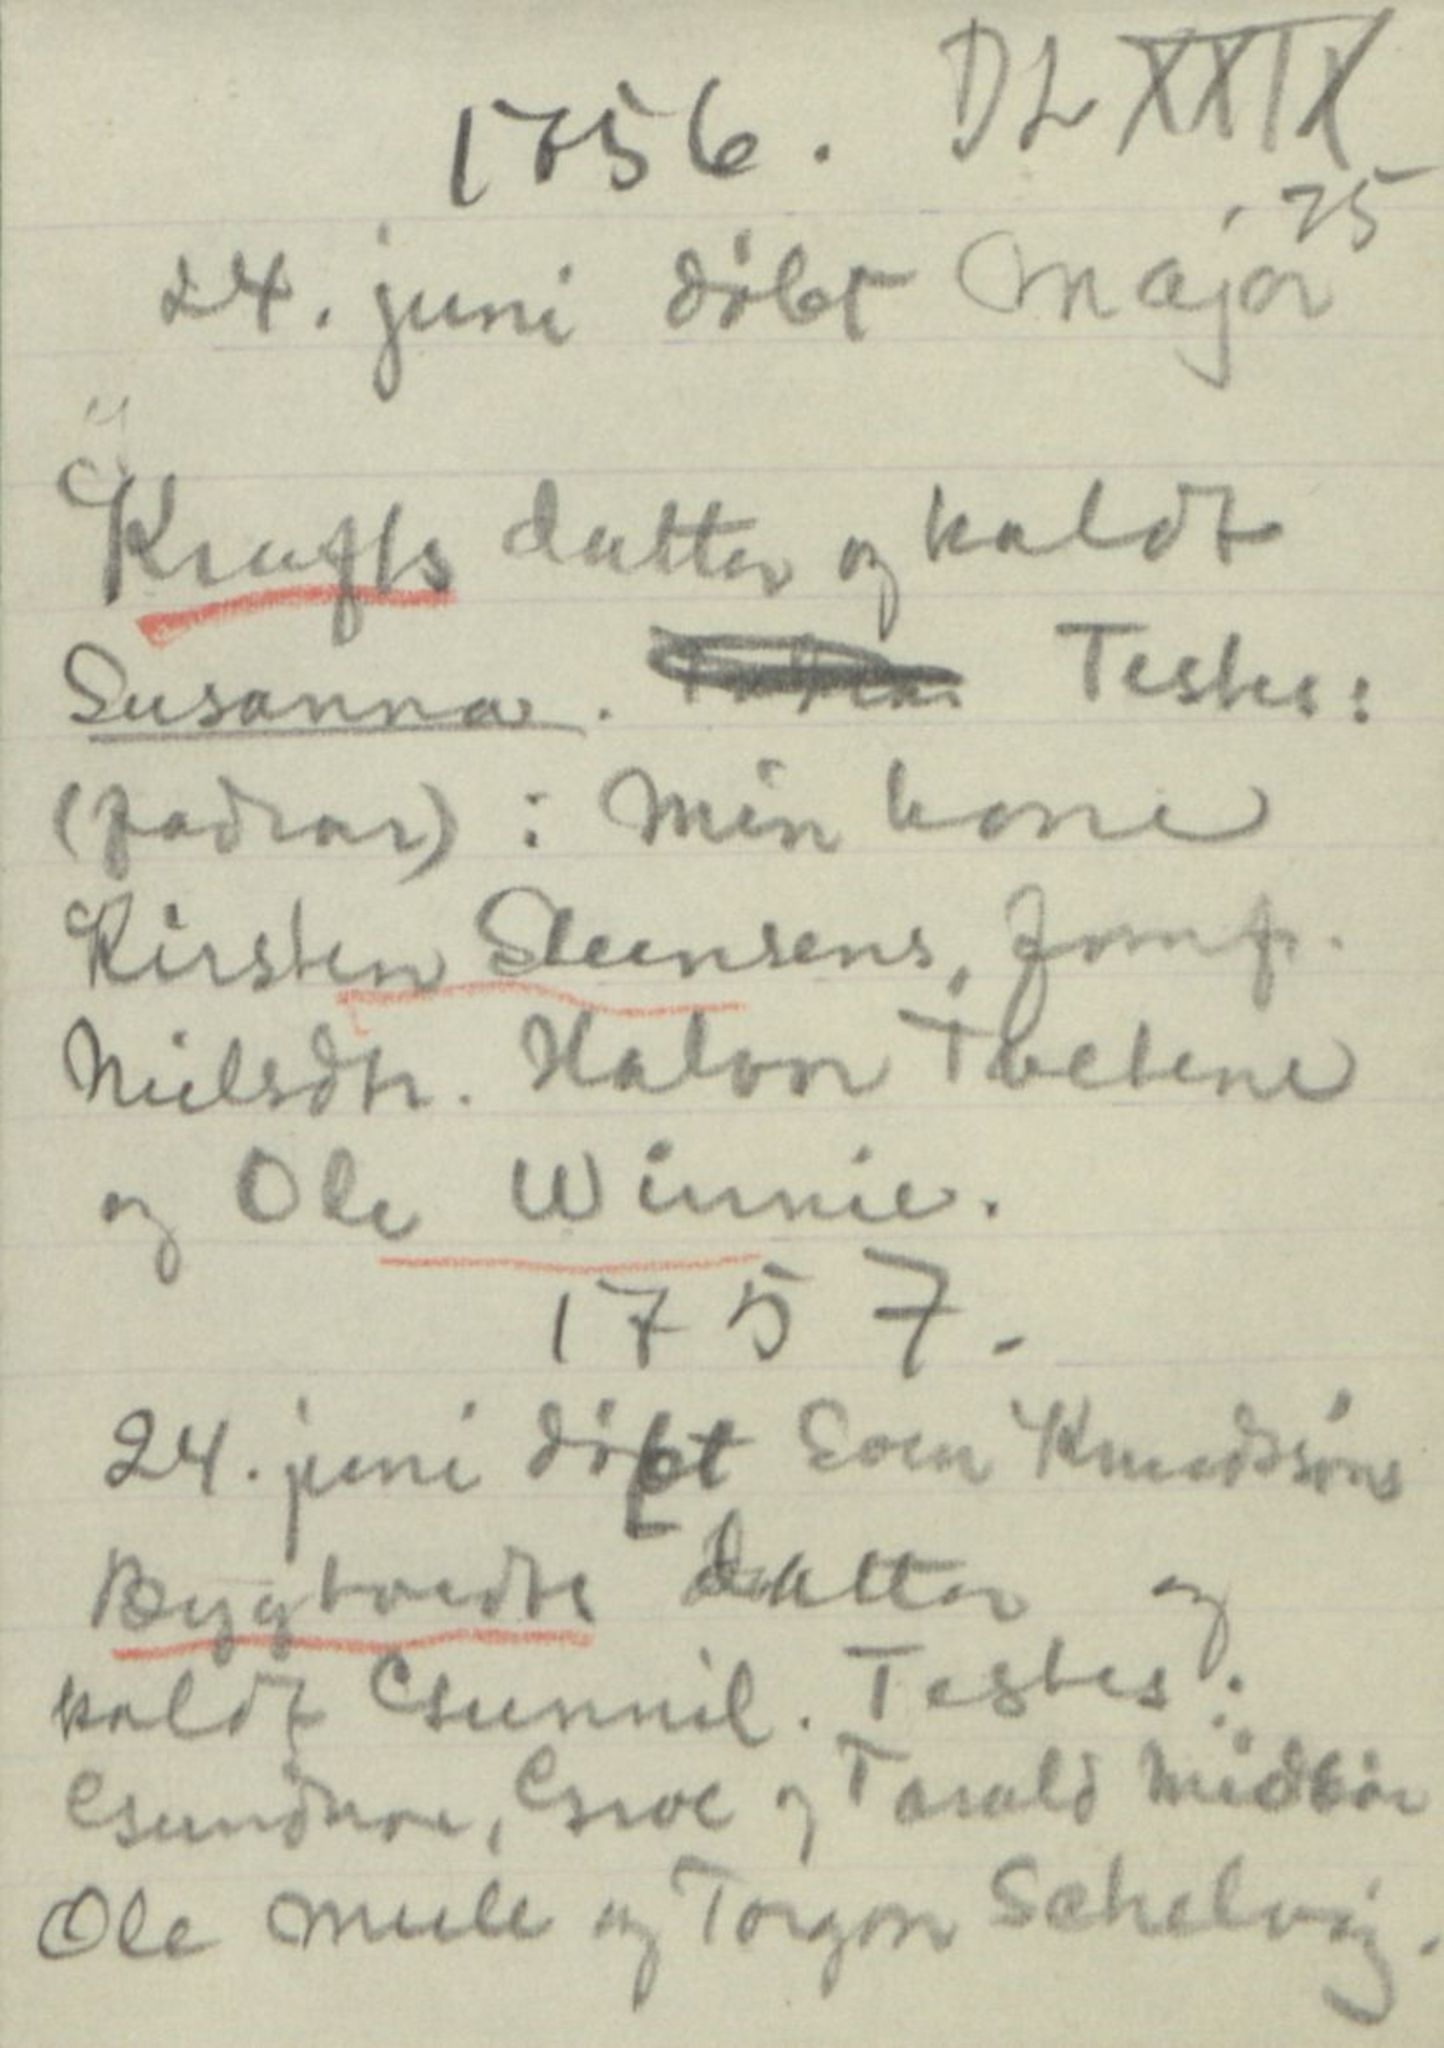 1756. DLXXIX
75
24. juni döbt major
Krafts datter og kaldt
Susanna. Testes:
(fadrar): Min kone
Kirsten Steensens, Jomfr.
Nielsdtr. Halvor Tvetene
og Ole Winnie.
1757.
24. juni döbt Sven Knudsöns
Bygtvedts datter og
kaldt Gunnil. Testes:
Gundror, Groe og Tarald Midböe
Ole Mule og Torgon Schelvig.